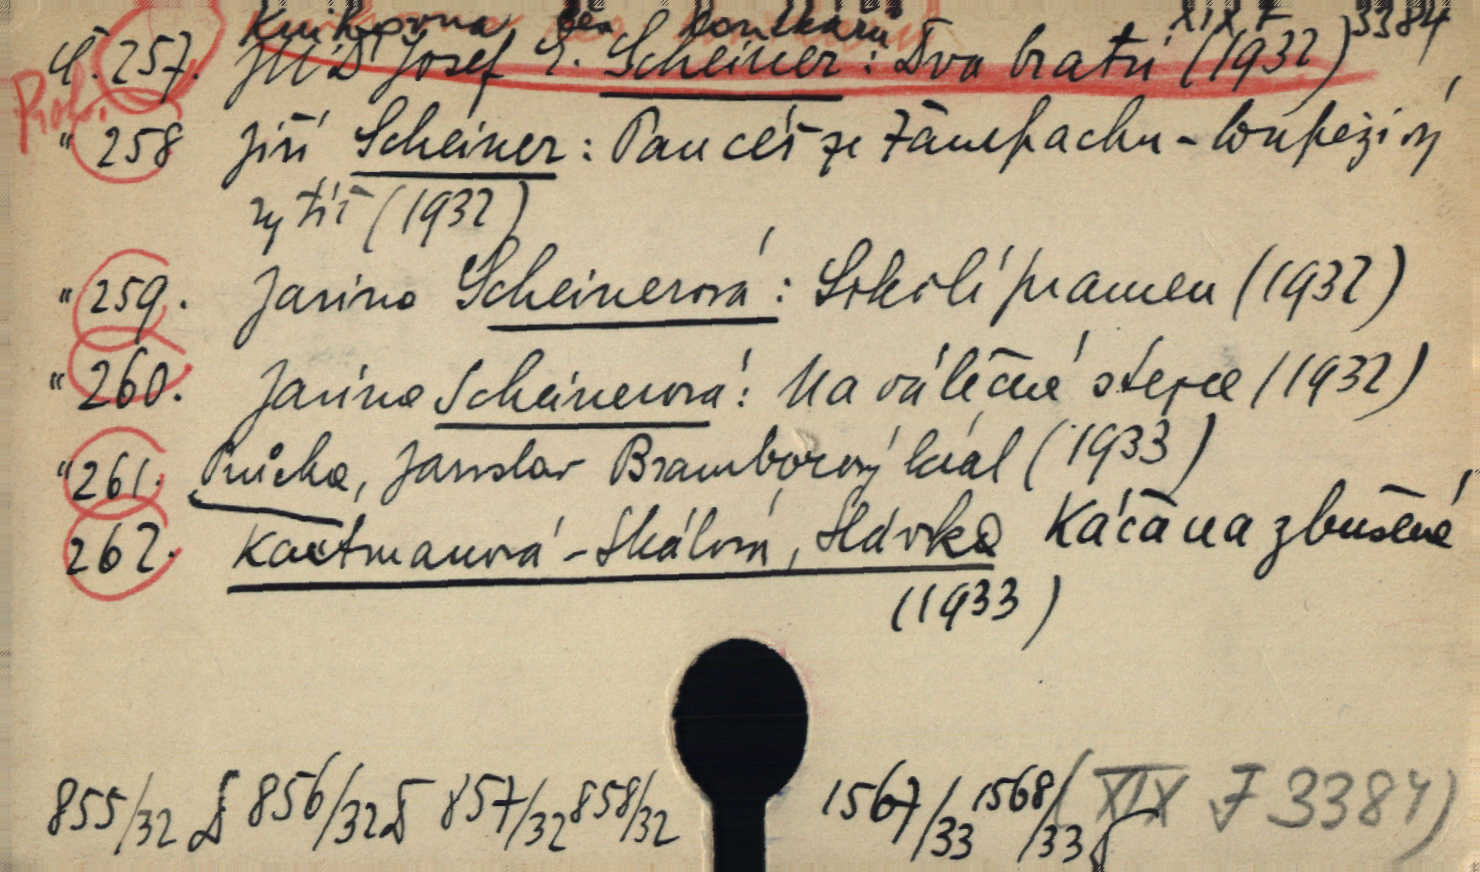 Knihovna čes. loutkářů XIX F 3384
č. 257. JUDr Josef E. Scheiner: Dva bratři (1932)
Rob.
" 258 Jiří Scheiner: Pan češ ze Žampachu - loupeživý
rytíř (1932)
" 259. Jarina Scheinerová: Sokolí pramen (1932)
" 260. Jarina Scheinerová: Na válečné stezce (1932)
" 261. Průcha, Jaroslav Bramborový král (1933)
262. Kartmanová-Skálová, Slávka Káča na zbušené
(1933)
855/32 D 856/32 D 857/32 858/32 1567/33 1568/33 (XIX F 3384)